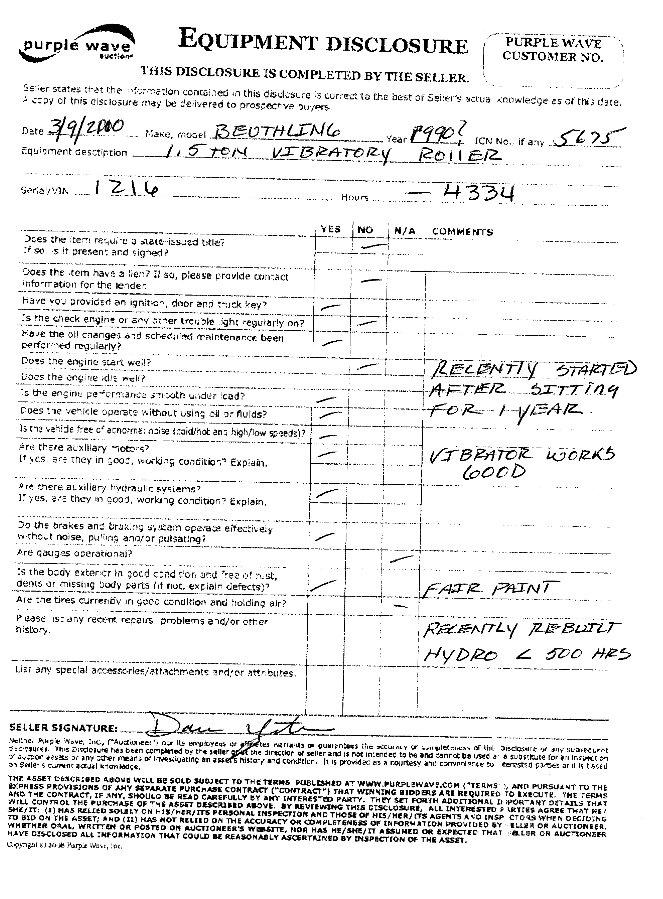 purple wave
auction
EQUIPMENT DISCLOSURE
PURPLE WAVE
CUSTOMER NO.
THIS DISCLOSURE IS COMPLETED BY THE SELLER.
Seller states that the information contained in this disclosure is correct to the best of Seller's actual knowledge as of this date.
A copy of this disclosure may be delivered to prospective buyers.
Date 3/9/2000 Make, model BEUTHLING Year 1990? ICN No. if any 5675
Equipment description 1.5 TON VIBRATORY ROLLER
Serial/VIN 1216 Hours 4334
YES NO N/A COMMENTS
Does the item require a state-issued title?
If so, is it present and signed?
Does the item have a lien? If so, please provide contact
information for the lender.
Have you provided an ignition, door and truck key?
Is the check engine or any other trouble light regularly on?
Have the oil changes and scheduled maintenance been
performed regularly?
Does the engine start well? RECENTLY STARTED
Does the engine idle well? AFTER SITTING
Is the engine performance smooth under load?
Does the vehicle operate without using oil or fluids? FOR 1 YEAR
Is the vehicle free of abnormal noise (cold/hot and high/low speeds)?
Are there auxiliary motors? VIBRATOR WORKS
If yes, are they in good, working condition? Explain. GOOD
Are there auxiliary hydraulic systems?
If yes, are they in good, working condition? Explain.
Do the brakes and braking system operate effectively
without noise, pulling and/or pulsating?
Are gauges operational?
Is the body exterior in good condition and free of rust,
dents or missing body parts (if not, explain defects)? FAIR PAINT
Are the tires currently in good condition and holding air?
Please list any recent repairs, problems and/or other RECENTLY REBUILT
history. HYDRO < 500 HRS
List any special accessories/attachments and/or attributes.
SELLER SIGNATURE:
Neither Purple Wave, Inc. ("Auctioneer") nor its employees or affiliates warrants or guarantees the accuracy or completeness of the Disclosure or any subsequent
disclosures. This Disclosure has been completed by the seller or at the direction of seller and is not intended to be and cannot be used as a substitute for an inspection
of auction assets or any other means of investigating an asset's history and condition. It is provided as a courtesy and convenience to interested parties and is based
on Seller's current actual knowledge.
THE ASSET DESCRIBED ABOVE WILL BE SOLD SUBJECT TO THE TERMS PUBLISHED AT WWW.PURPLEWAVE.COM ("TERMS"), AND PURSUANT TO THE
EXPRESS PROVISIONS OF ANY SEPARATE PURCHASE CONTRACT ("CONTRACT") THAT WINNING BIDDERS ARE REQUIRED TO EXECUTE. THE TERMS
AND THE CONTRACT, IF ANY, SHOULD BE READ CAREFULLY BY ANY INTERESTED PARTY. THEY SET FORTH ADDITIONAL IMPORTANT DETAILS THAT
WILL CONTROL THE PURCHASE OF THE ASSET DESCRIBED ABOVE. BY REVIEWING THIS DISCLOSURE, ALL INTERESTED PARTIES AGREE THAT HE/
SHE/IT: (I) HAS RELIED SOLELY ON HIS/HER/ITS PERSONAL INSPECTION AND THOSE OF HIS/HER/ITS AGENTS AND INSPECTORS WHEN DECIDING
TO BID ON THE ASSET; AND (II) HAS NOT RELIED ON THE ACCURACY OR COMPLETENESS OF INFORMATION PROVIDED BY SELLER OR AUCTIONEER,
WHETHER ORAL, WRITTEN OR POSTED ON AUCTIONEER'S WEBSITE, NOR HAS HE/SHE/IT ASSUMED OR EXPECTED THAT SELLER OR AUCTIONEER
HAVE DISCLOSED ALL INFORMATION THAT COULD BE REASONABLY ASCERTAINED BY INSPECTION OF THE ASSET.
Copyright Purple Wave, Inc.